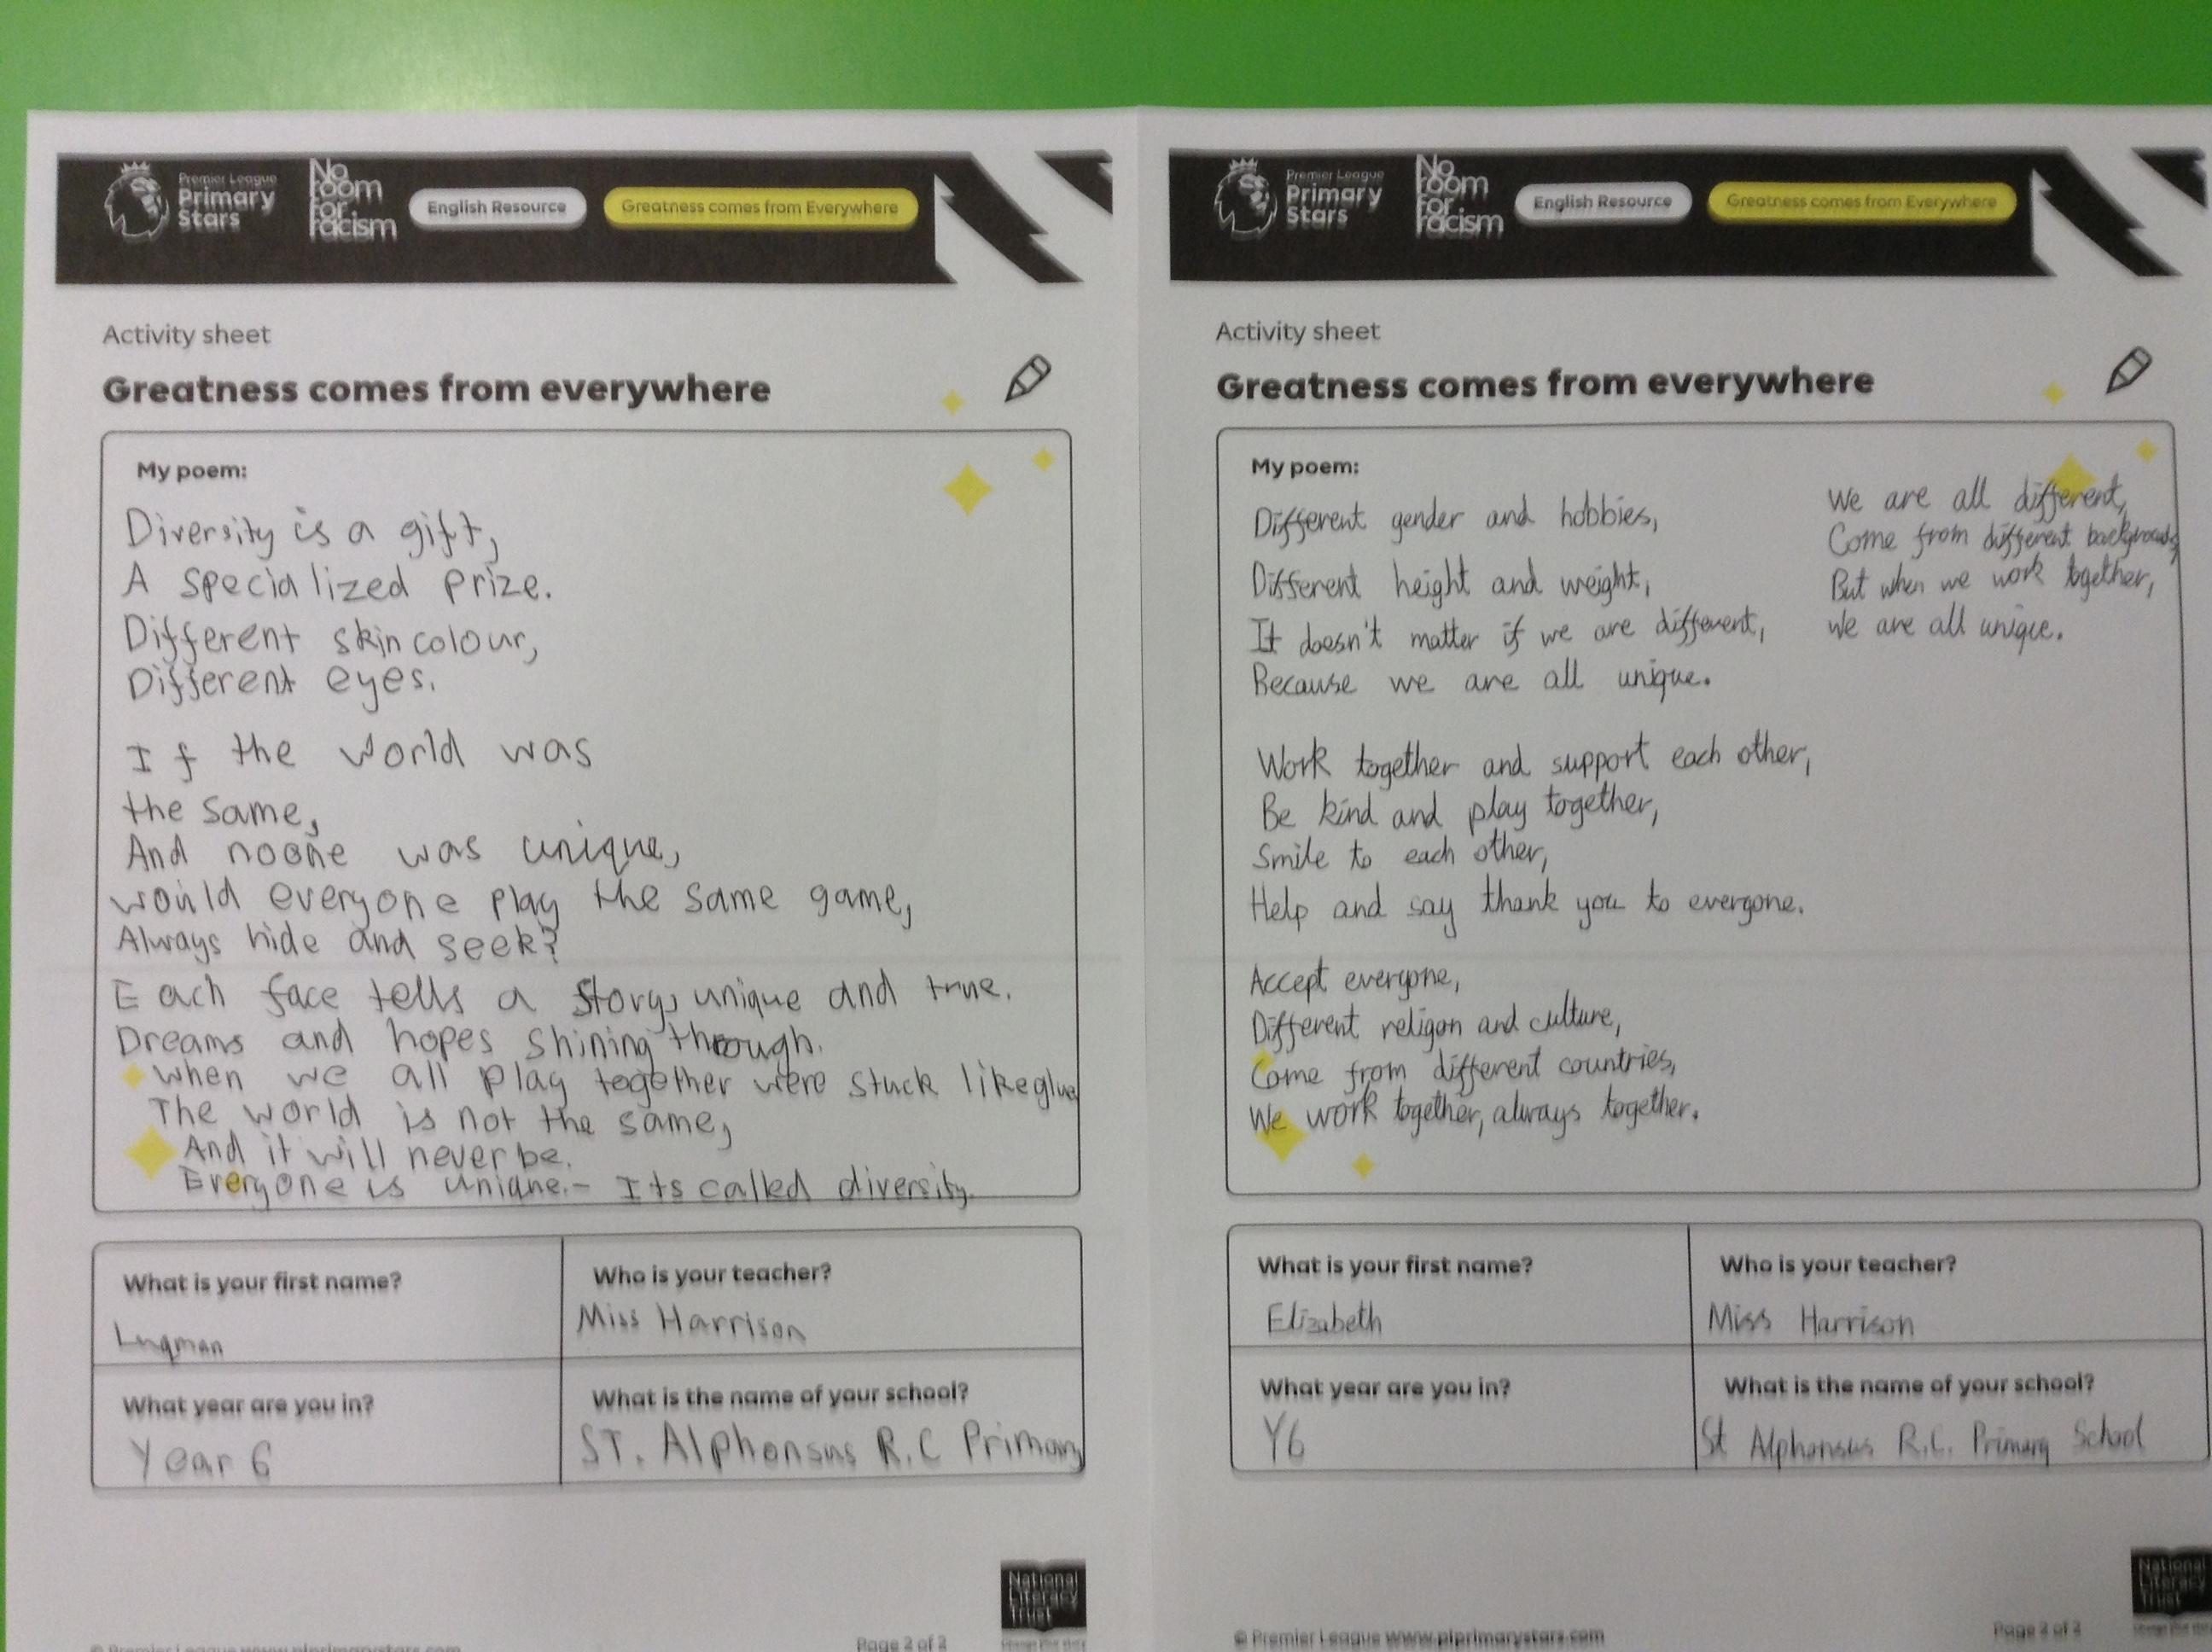 Premier League
Primary
Stars
No
room
for
racism
English Resource
Greatness comes from Everywhere
Activity sheet
Greatness comes from everywhere
My poem:
Diversity is a gift,
A specialized prize.
Different skin colour,
Different eyes.
If the world was
the same,
And noone was unique,
would everyone play the same game,
Always hide and seek?
Each face tells a story, unique and true.
Dreams and hopes shining through.
when we all play together were stuck like glue
The world is not the same,
And it will never be.
Everyone is unique.- Its called diversity.
What is your first name?
Luqman
Who is your teacher?
Miss Harrison
What year are you in?
Year 6
What is the name of your school?
ST. Alphonsus R.C Primary
National
Literacy
Trust
© Premier League www.plprimarystars.com
Page 2 of 2
Premier League
Primary
Stars
No
room
for
racism
English Resource
Greatness comes from Everywhere
Activity sheet
Greatness comes from everywhere
My poem:
Different gender and hobbies,
Different height and weight,
It doesn't matter if we are different,
Because we are all unique.
Work together and support each other,
Be kind and play together,
Smile to each other,
Help and say thank you to everyone.
Accept everyone,
Different religon and culture,
Come from different countries,
We work together, always together.
We are all different,
Come from different backgrounds,
But when we work together,
We are all unique.
What is your first name?
Elizabeth
Who is your teacher?
Miss Harrison
What year are you in?
Y6
What is the name of your school?
St Alphonsus R.C. Primary School
National
Literacy
Trust
© Premier League www.plprimarystars.com
Page 2 of 2